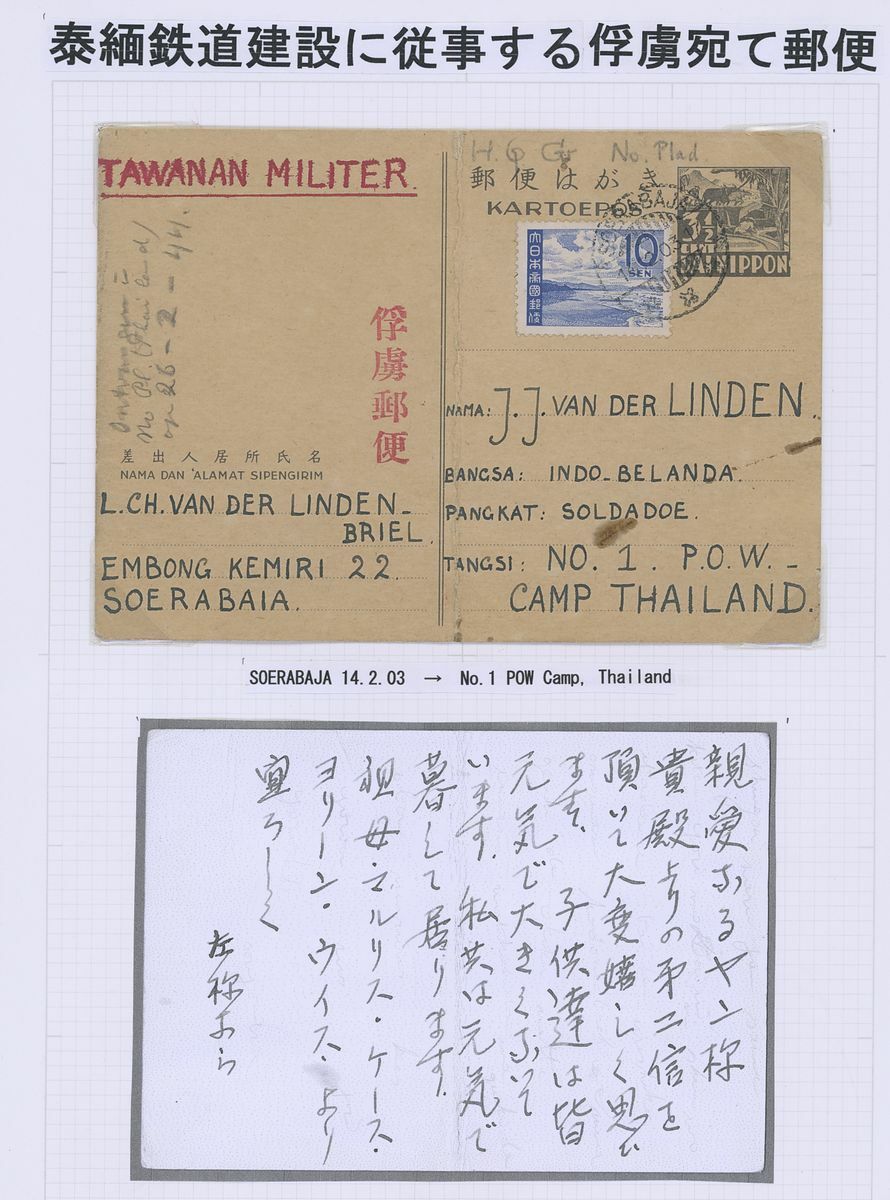 泰緬鉄道建設に従事する俘虜宛て郵便
TAWANAN MILITER.
H.Q No. Plad.
郵便はがき
KARTOEPOS
3½
CENT
DAI NIPPON
大日本帝國郵便
10
SEN
SOERABAJA
俘虜郵便
No Pl. (Thailand)
op 26-2-44.
差出人居所氏名
NAMA DAN 'ALAMAT SIPENGIRIM
L.CH. VAN DER LINDEN_
BRIEL
EMBONG KEMIRI 22.
SOERABAIA.
NAMA: J.J. VAN DER LINDEN.
BANGSA: INDO-BELANDA.
PANGKAT: SOLDADOE.
TANGSI: NO. 1. P.O.W. -
CAMP THAILAND.
SOERABAJA 14.2.03 → No.1 POW Camp, Thailand
親愛なるヤン
貴殿よりの第二信を
頂いて大変嬉しく思ひ
ます、子供達は皆
元気で大きくなって
います。私共は元気で
暮して居ります。
祖母・マルリス・ケース・
ヨリーン・ウイス・より
宜ろしく